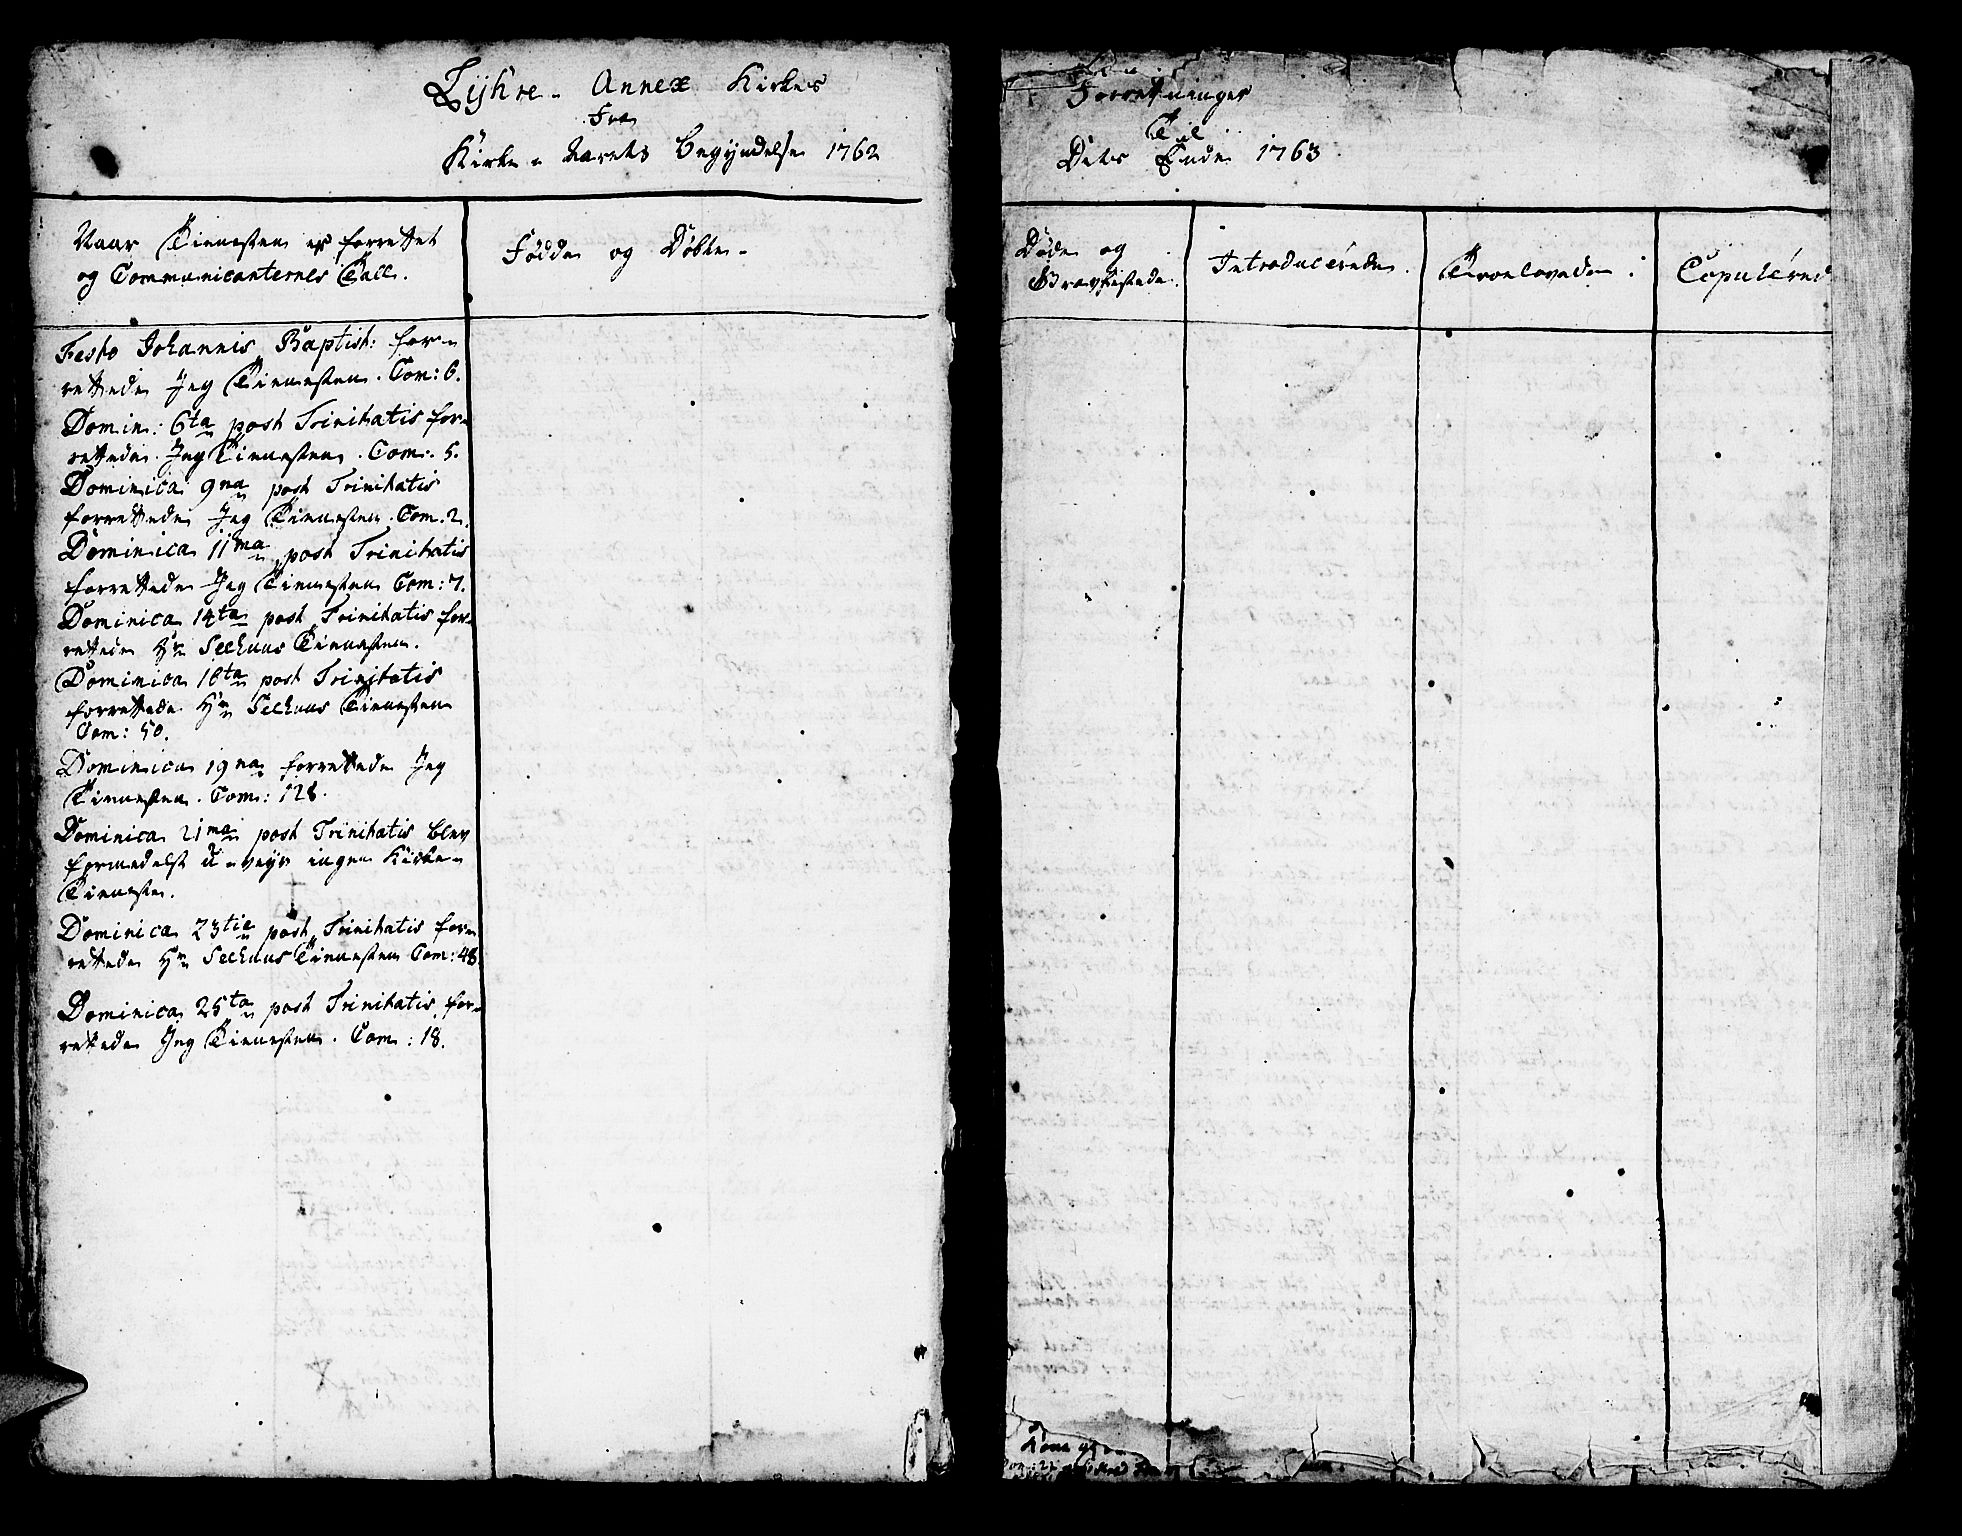 Lyhre - Annex Kirkes
Fra
Kirke - Aarets Begyndelse 1762
Naar Tienesten er forrettet
og Communicanternes Tall.
Fødde og Døbte -
Festo Johannis Baptist: for-
rettede Jeg Tienesten. Com: 6.
Domin: 6ta post Trinitatis for-
rettede Jeg Tienesten. Com: 5.
Dominica 9na post Trinitatis
forrettede Jeg Tienesten. Com. 2.
Dominica 11ma post Trinitatis
forrettede Jeg Tienesten Com: 7.
Dominica 14ta post Trinitatis for-
rettede Hr Seehuus Tienesten.
Dominica 16ta post Trinitatis
forrettede Hr Seehuus Tienesten
Com: 50.
Dominica 19na forrettede Jeg
Tienesten. Com: 128.
Dominica 21ma post Trinitatis blev
formedelst u-veyr ingen Kirke-
Tieneste.
Dominica 23tie post Trinitatis for-
rettede Hr Seehuus Tienesten Com: 48
Dominica 25ta post Trinitatis for-
rettede Jeg Tienesten. Com: 18.
Forretninger
Til
Dets Ende 1763
Døde og
Gravfæstede.
Introducerede.
Troelovede.
Copulered